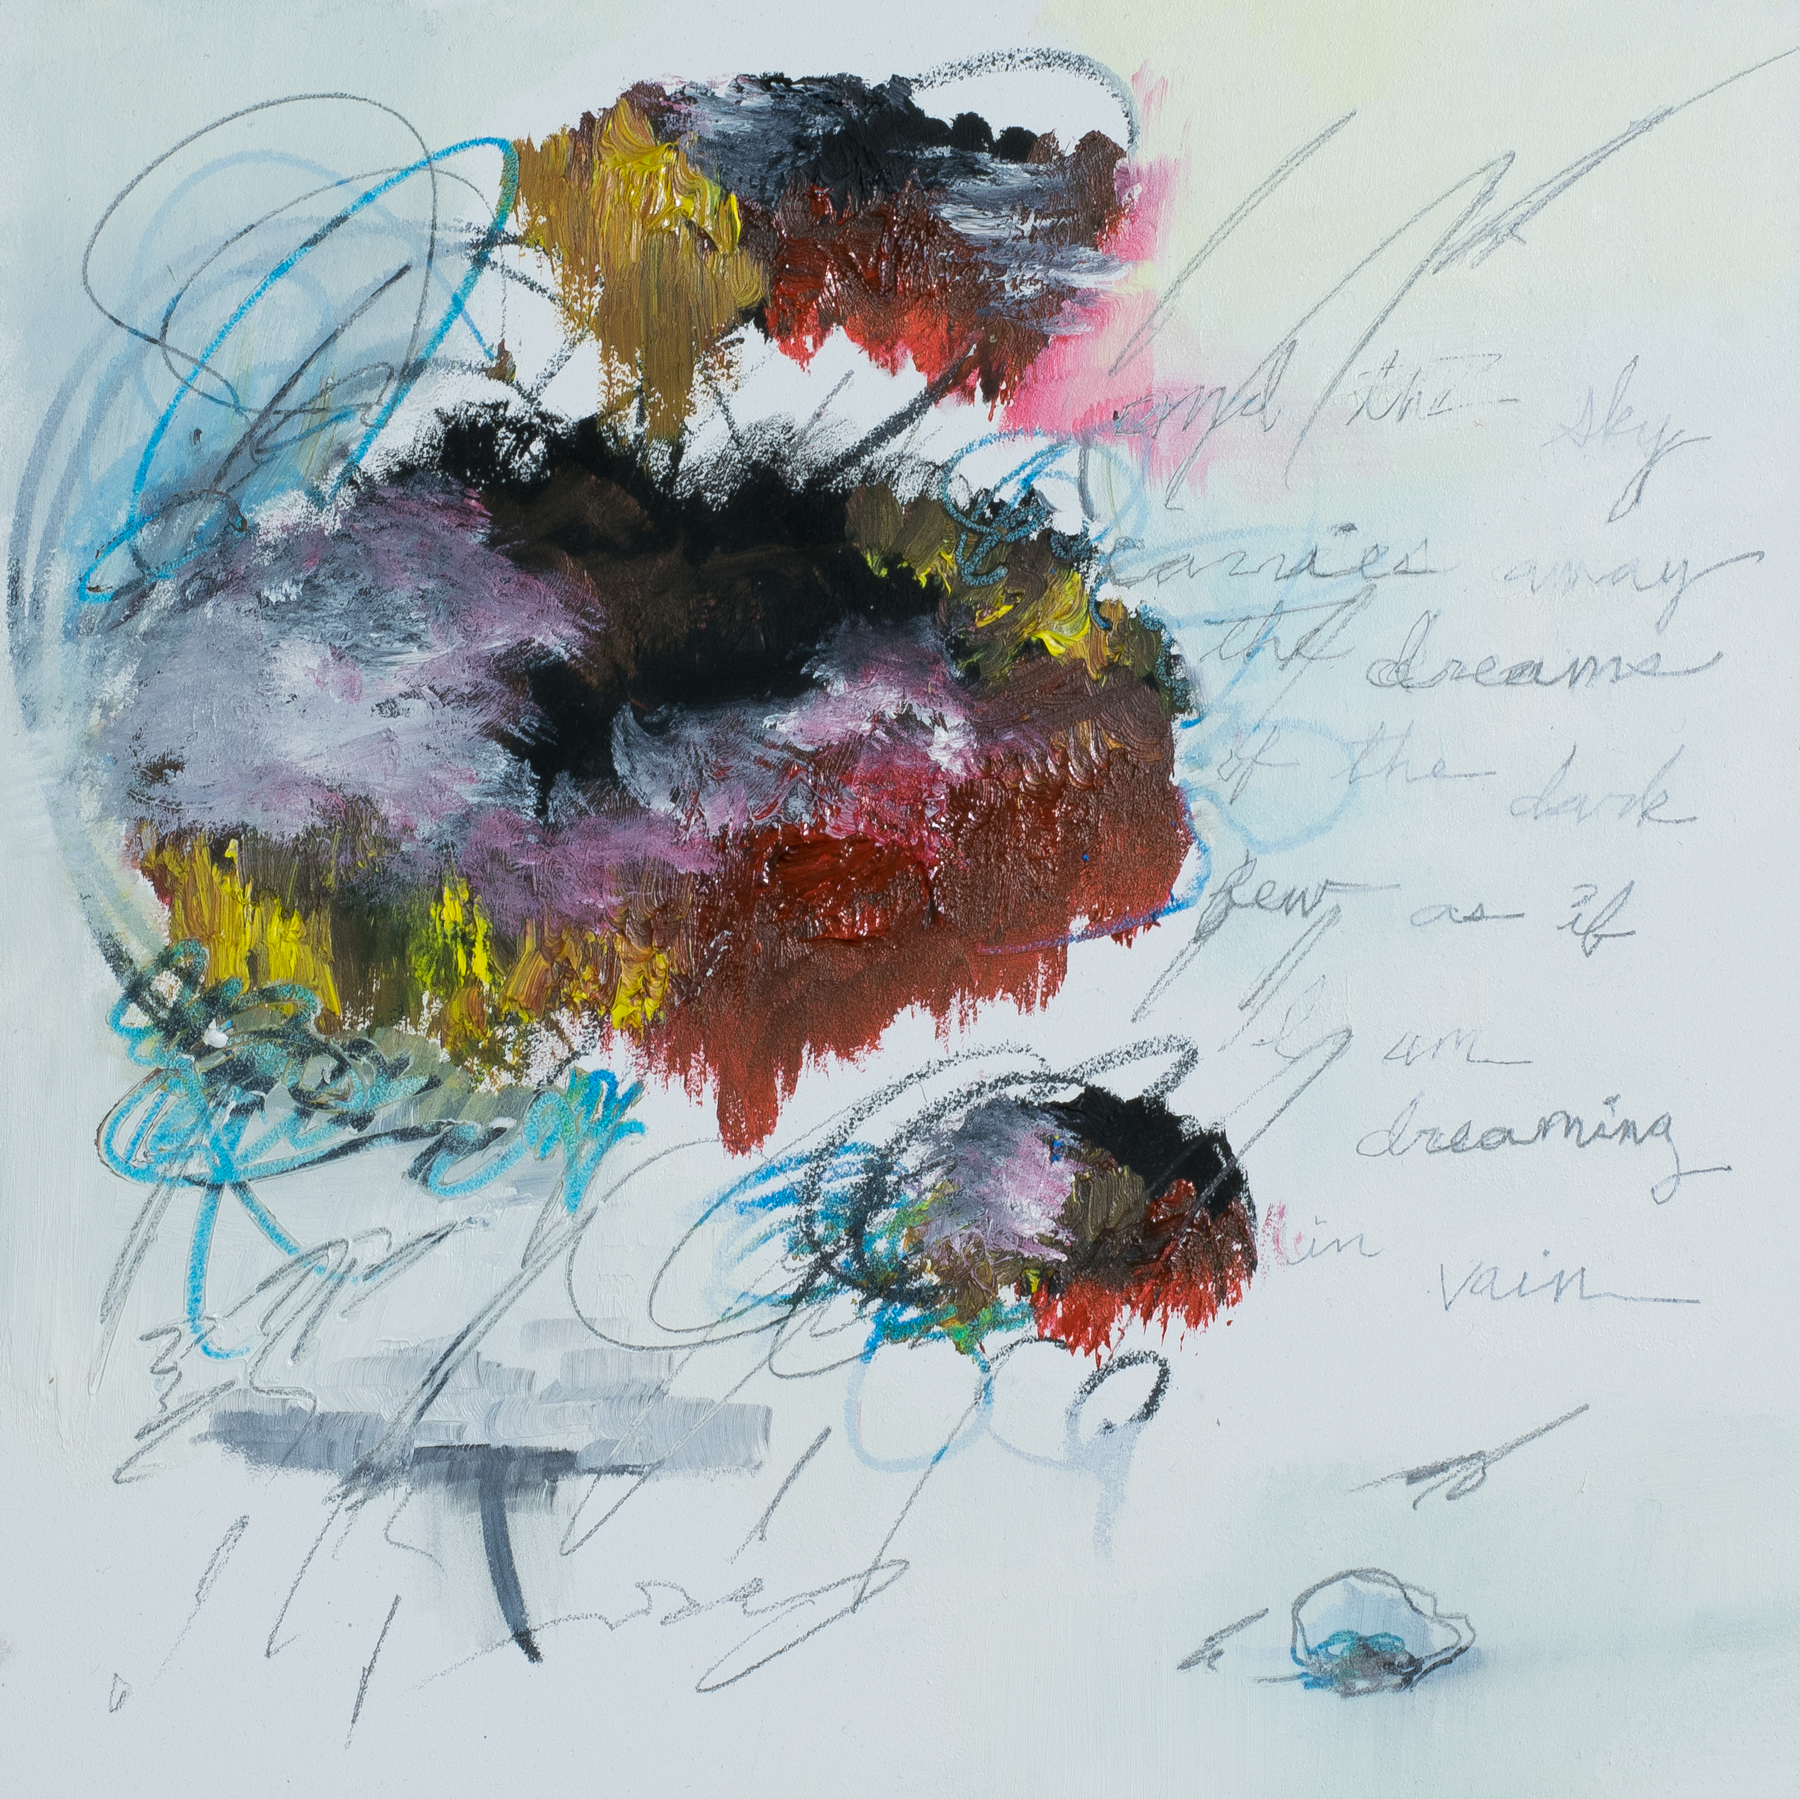 and the sky
carries away
the dreams
of the dark
few as if
I am
dreaming
in
vain